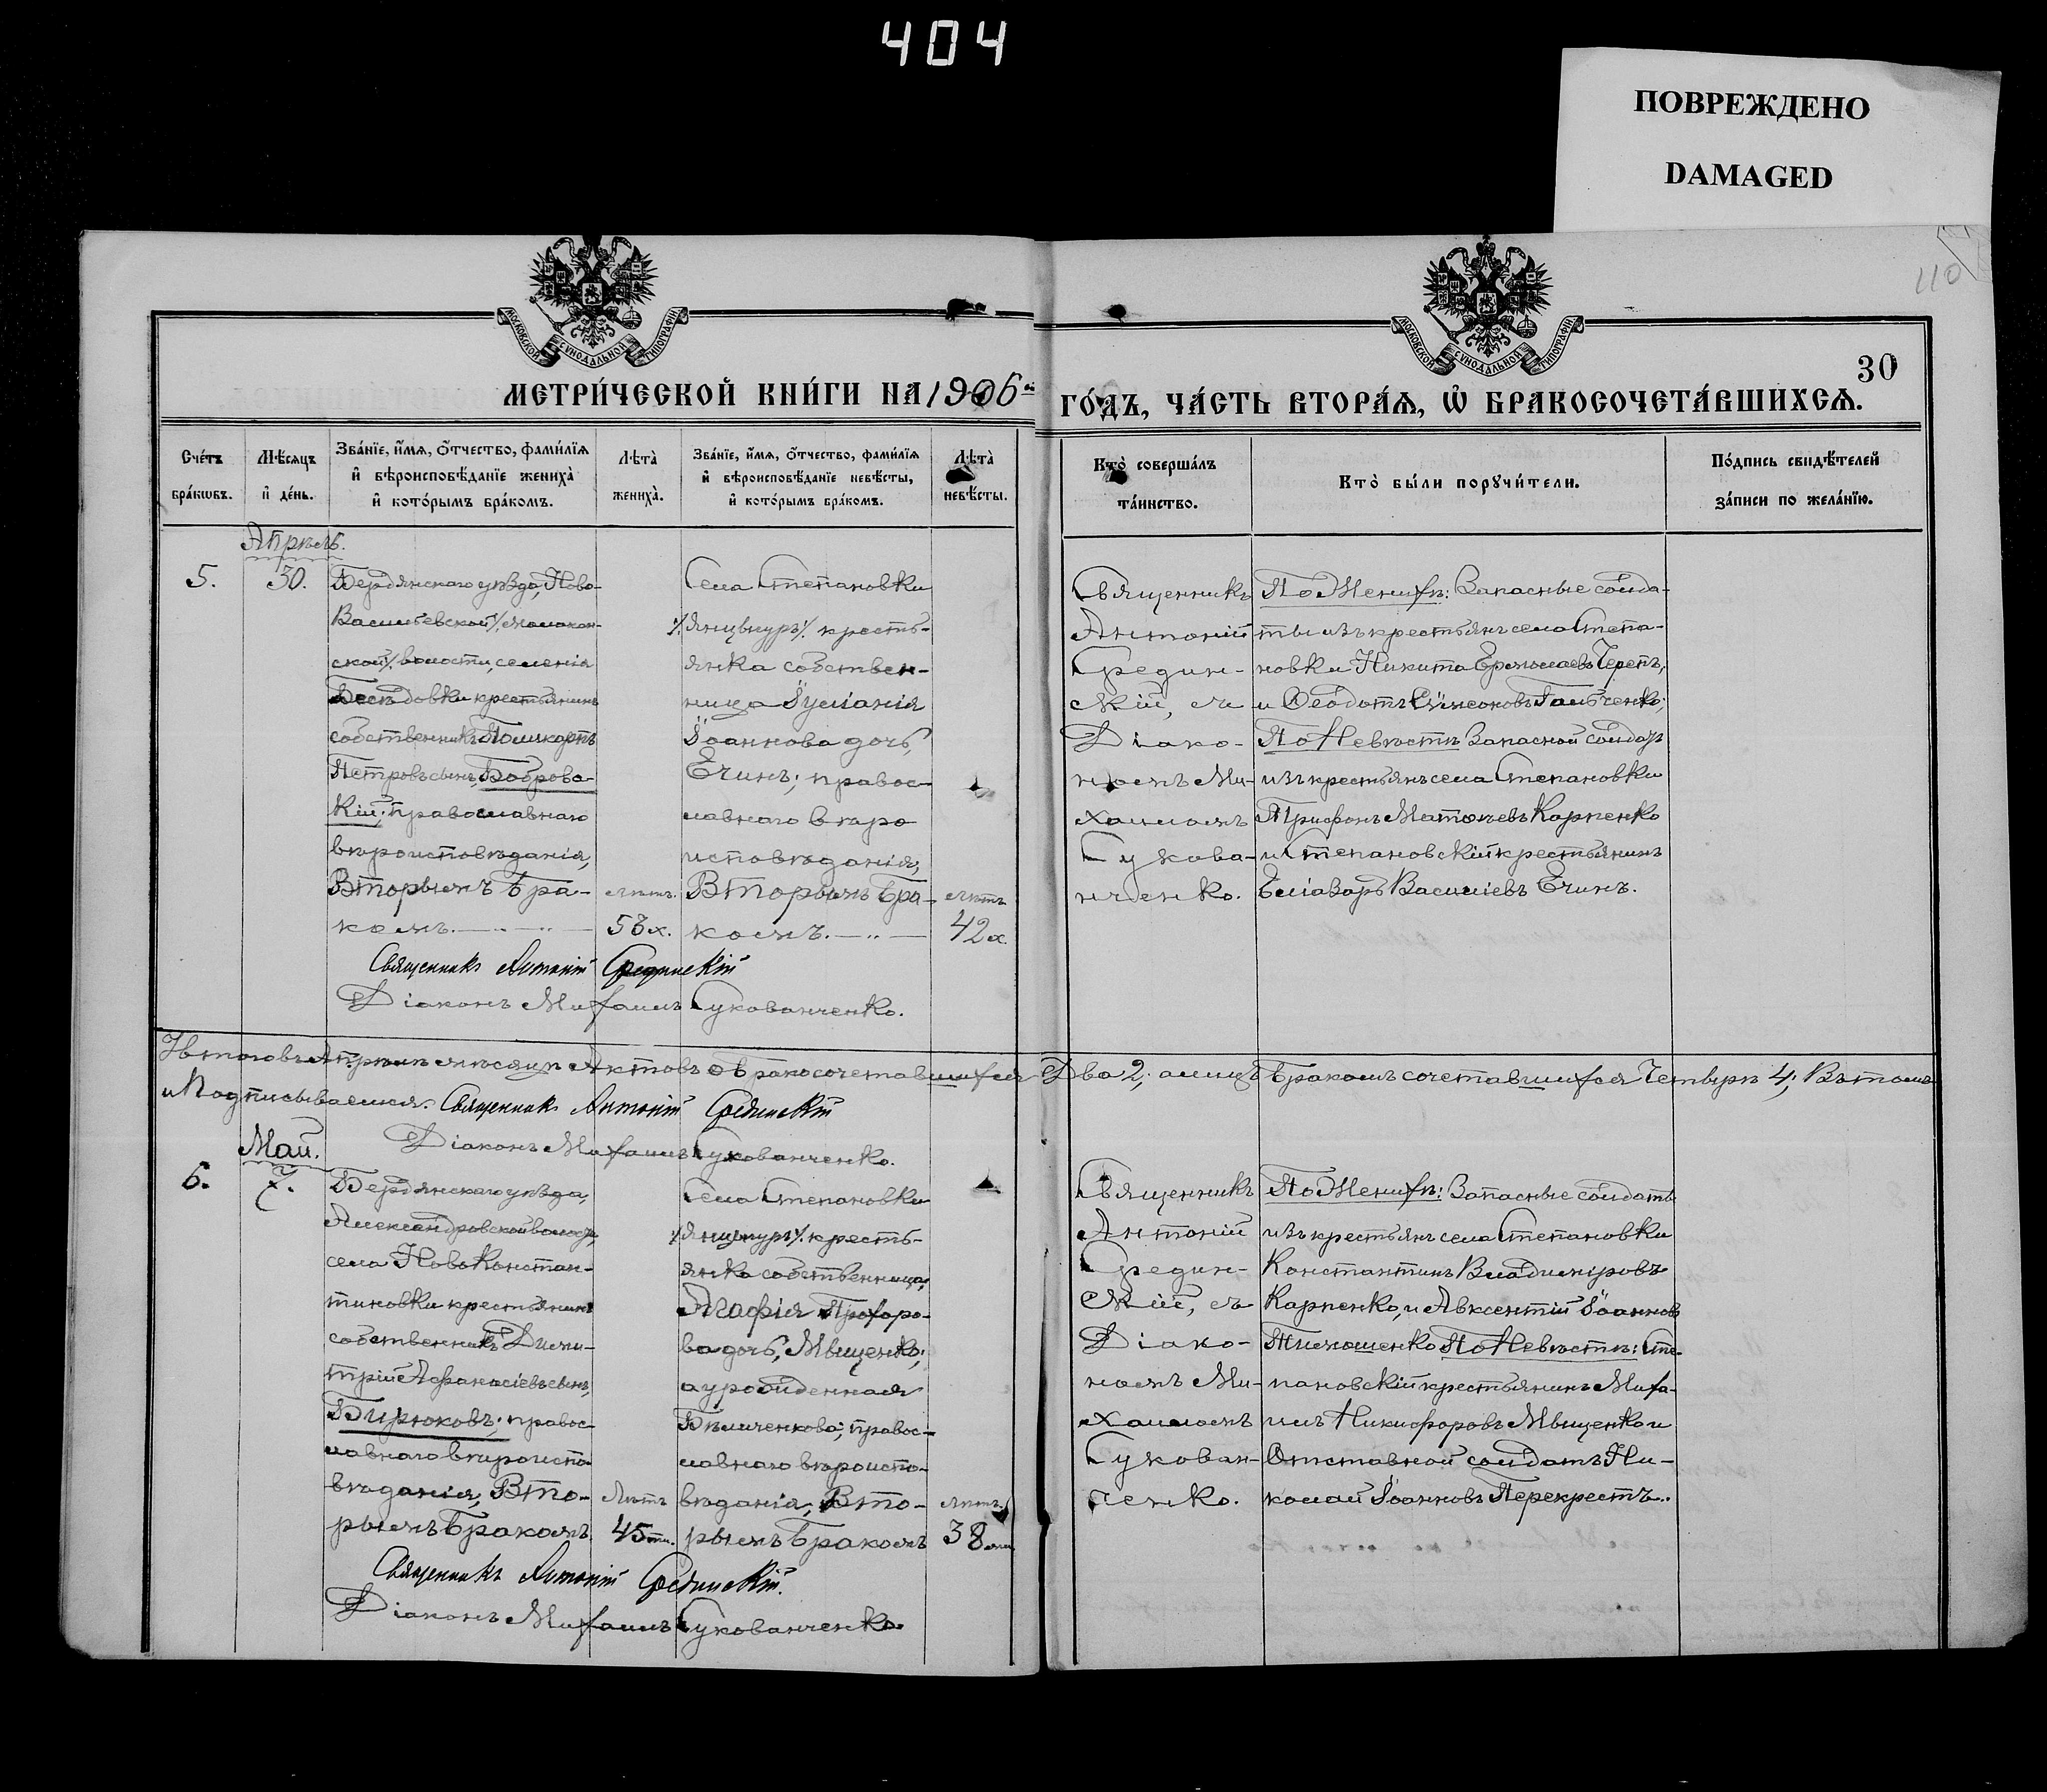 404
ПОВРЕЖДЕНО
DAMAGED
110
МОСКОВСКОЙ СѴНОДАЛЬНОЙ ТИПОГРАФІИ
МОСКОВСКОЙ СѴНОДАЛЬНОЙ ТИПОГРАФІИ
30
МЕТРИ́ЧЕСКОЙ КНИ́ГИ НА 1906й
ГО́ДЪ, ЧА́СТЬ ВТОРА́Ѧ, Ѡ҆ БРАКОСОЧЕТА́ВШИХСѦ.
Сче́тъ бра́кѡвъ.
Мѣ́сяцъ и҆ де́нь.
Зва́нїе, и҆́мѧ, о҆́тчество, фами́лїѧ
и҆ вѣроисповѣ́данїе жениха̀
и҆ кото́рымъ бра́комъ.
Лѣта̀ жениха̀.
Зва́нїе, и҆́мѧ, о҆́тчество, фами́лїѧ
и҆ вѣроисповѣ́данїе невѣ́сты,
и҆ кото́рымъ бра́комъ.
Лѣта̀ невѣ́сты.
Кто̀ соверша́лъ
та́инство.
Кто̀ бы́ли порꙋчи́тели.
По́дпись свидѣ́телей
за́писи по жела́нїю.
Апрѣль.
5.
30.
Бердянскаго уѣзда, Ново-
Васильевской /: Молокан-
ской :/ волости, селенія
Бесѣдовки крестьянинъ
собственникъ Поликарпъ
Петровъ сынъ, Бобров-
кій; православнаго
вѣроисповѣданія,
Вторымъ бра-
комъ.
лѣтъ.
53х.
Села Степановки
/: Янцыкуръ :/ кресть-
янка собствен-
ница Іуліанія
Іоаннова дочь,
Ечинъ; правос-
лавнаго вѣро
исповѣданія,
Вторымъ бра-
комъ.
лѣтъ
42х.
Священникъ
Антоній
Средин-
скій, съ
Діако-
номъ Ми-
хаиломъ
Сукова-
нченко.
По Женихѣ: Запасные солда-
ты изъ крестьянъ села Степа-
новки Никита Ермолаевъ Черепъ,
и Ѳеодотъ Сѵмеоновъ Гальченко;
По Невѣстѣ Запасной солдатъ
изъ крестьянъ села Степановки
Трифонъ Матѳеевъ Карпенко
и Степановскій крестьянинъ
Еліазаръ Василіевъ Ечинъ.
Священникъ Антоній Срединскій
Діаконъ Михаилъ Сукованченко.
Итого въ Апрѣлѣ мѣсяцѣ Актовъ о бракосочетавшихся Два 2; а лицъ бракомъ сочетавшихся Четыре 4; Въ томъ
и Подписываемся. Священникъ Антоній Срединскій
Діаконъ Михаилъ Сукованченко.
Май.
6.
7.
Бердянскаго уѣзда,
Александровской волости,
села НовоКонстан-
тиновки крестьянинъ
собственникъ Дими-
трій Аѳанасіевъ сынъ,
Бирюковъ; правос-
лавнаго вѣроиспо-
вѣданія, Вто-
рымъ бракомъ.
лѣтъ
45ти.
Села Степановки
/: Янцыкуръ :/ кресть-
янка собственница,
Агафія Прохоро-
ва дочь, Ивщенко;
а урожденная
Бѣличенкова; правос-
лавнаго вѣроиспо-
вѣданія, Вто-
рымъ бракомъ
лѣтъ
38ми
Священникъ
Антоній
Средин-
скій, съ
Діако-
номъ Ми-
хаиломъ
Сукован-
ченко.
По Женихѣ: Запасные солдаты
изъ крестьянъ села Степановки
Константинъ Владиміровъ
Карпенко, и Авксентій Іоанновъ
Тимошенко По Невѣстѣ: Сте-
пановскій крестьянинъ Миха-
илъ Никифоровъ Ивщенко и
Отставной солдатъ Ни-
колай Іоанновъ Перекрестъ.
Священникъ Антоній Срединскій.
Діаконъ Михаилъ Сукованченко